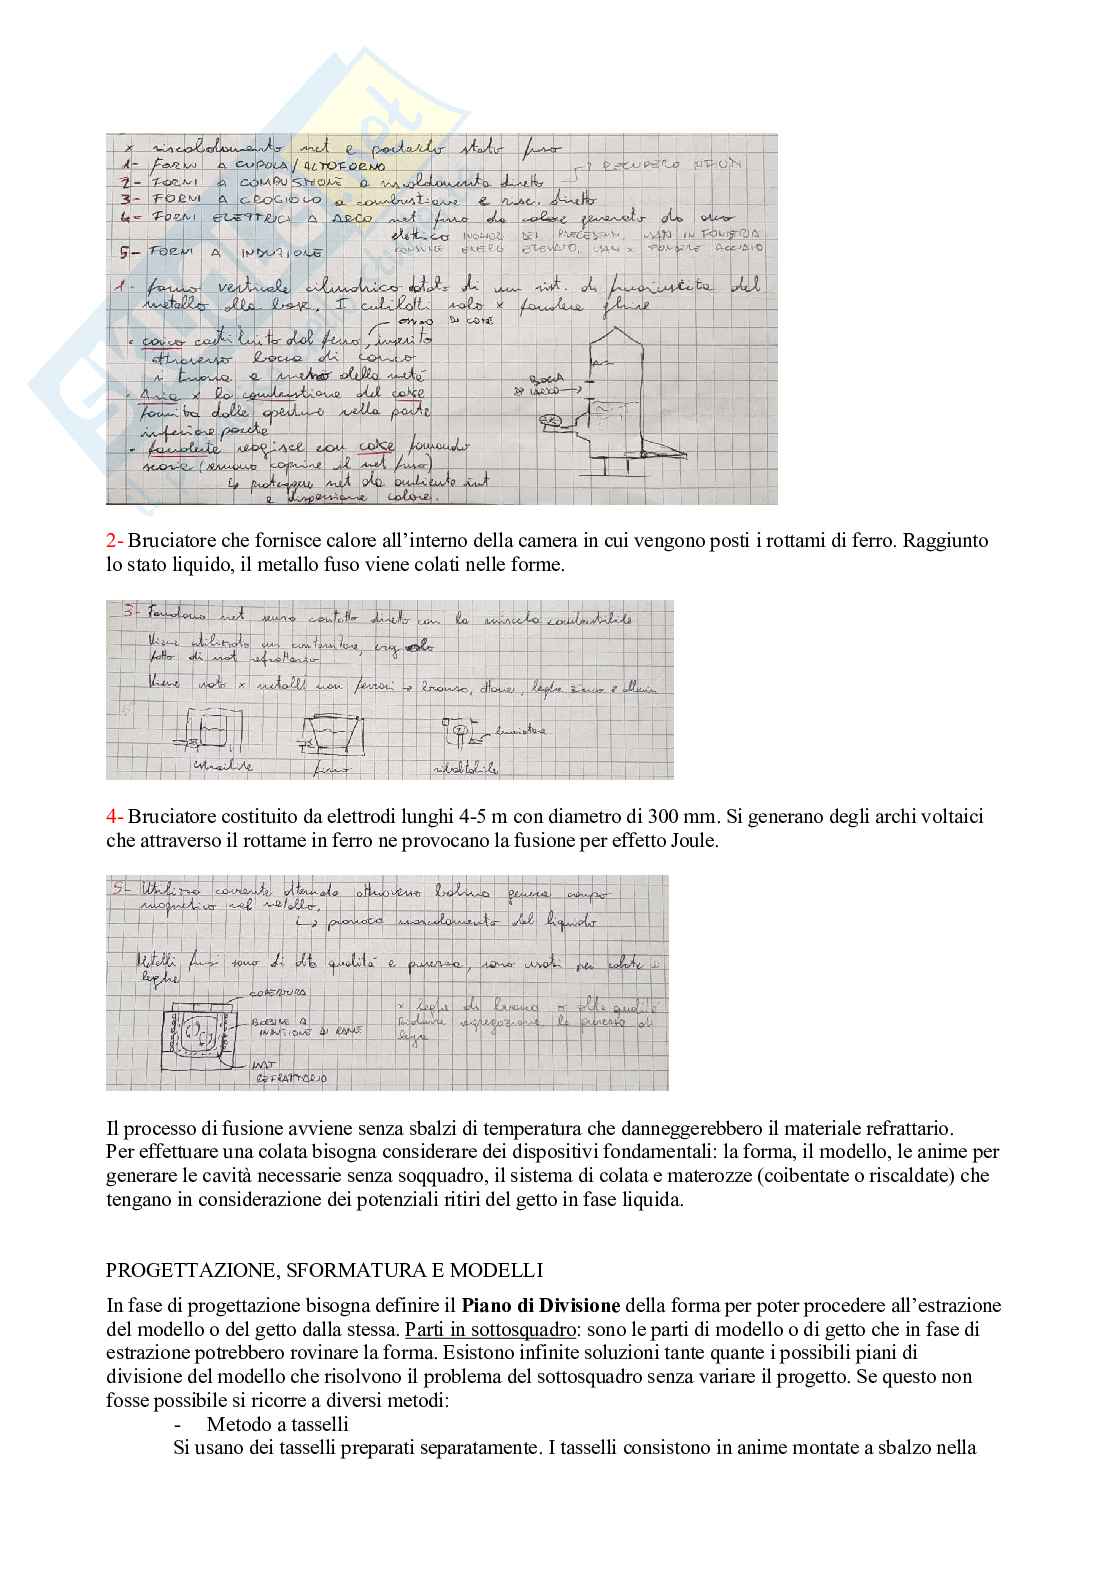 x riscaldamento met e portarlo stato fuso
1- FORNI A CUPOLA/ALTOFORNO
2- FORNI A COMBUSTIONE a riscaldamento diretto
3- FORNI A CROCIOLO a combustione e risc. diretto
4- FORNI ELETTRICI A ARCO met fuso da calore generato da arco
elettrico
5- FORNI A INDUZIONE
1- forno verticale cilindrico dotato di un sist. di fuoriuscita del
metallo alla base. I cubilotti solo x fondere ghise
• carico costituito dal ferro, inserito
attraverso bocca di carico
BOCCA
• Aria x la combustione del coke
fornita dalle aperture nella parte
inferiore
• fondente reagisce con coke formando
scorie (servono coprire il met fuso)
↳ proteggere met da ambiente est
e dispersione calore.
2- Bruciatore che fornisce calore all’interno della camera in cui vengono posti i rottami di ferro. Raggiunto
lo stato liquido, il metallo fuso viene colati nelle forme.
3- Fondono met senza contatto diretto con la miscela combustibile
Viene utilizzato un contenitore,
fatto di mat refrattario
Viene usato x metalli non ferrosi → bronzo, ottone, leghe zinco e
bruciatore
estraibile fisso ribaltabile
4- Bruciatore costituito da elettrodi lunghi 4-5 m con diametro di 300 mm. Si generano degli archi voltaici
che attraverso il rottame in ferro ne provocano la fusione per effetto Joule.
5- Utilizzo corrente alternata attraverso bobina genera campo
magnetico nel metallo.
↳ provoca riscaldamento del liquido
Metalli fusi sono di alta qualità e purezza, sono usati per colate e
leghe
COPERTURA
BOBINE A
INDUZIONE DI RAME
MAT
REFRATTARIO
Il processo di fusione avviene senza sbalzi di temperatura che danneggerebbero il materiale refrattario.
Per effettuare una colata bisogna considerare dei dispositivi fondamentali: la forma, il modello, le anime per
generare le cavità necessarie senza soqquadro, il sistema di colata e materozze (coibentate o riscaldate) che
tengano in considerazione dei potenziali ritiri del getto in fase liquida.
PROGETTAZIONE, SFORMATURA E MODELLI
In fase di progettazione bisogna definire il Piano di Divisione della forma per poter procedere all’estrazione
del modello o del getto dalla stessa. Parti in sottosquadro: sono le parti di modello o di getto che in fase di
estrazione potrebbero rovinare la forma. Esistono infinite soluzioni tante quante i possibili piani di
divisione del modello che risolvono il problema del sottosquadro senza variare il progetto. Se questo non
fosse possibile si ricorre a diversi metodi:
- Metodo a tasselli
Si usano dei tasselli preparati separatamente. I tasselli consistono in anime montate a sbalzo nella